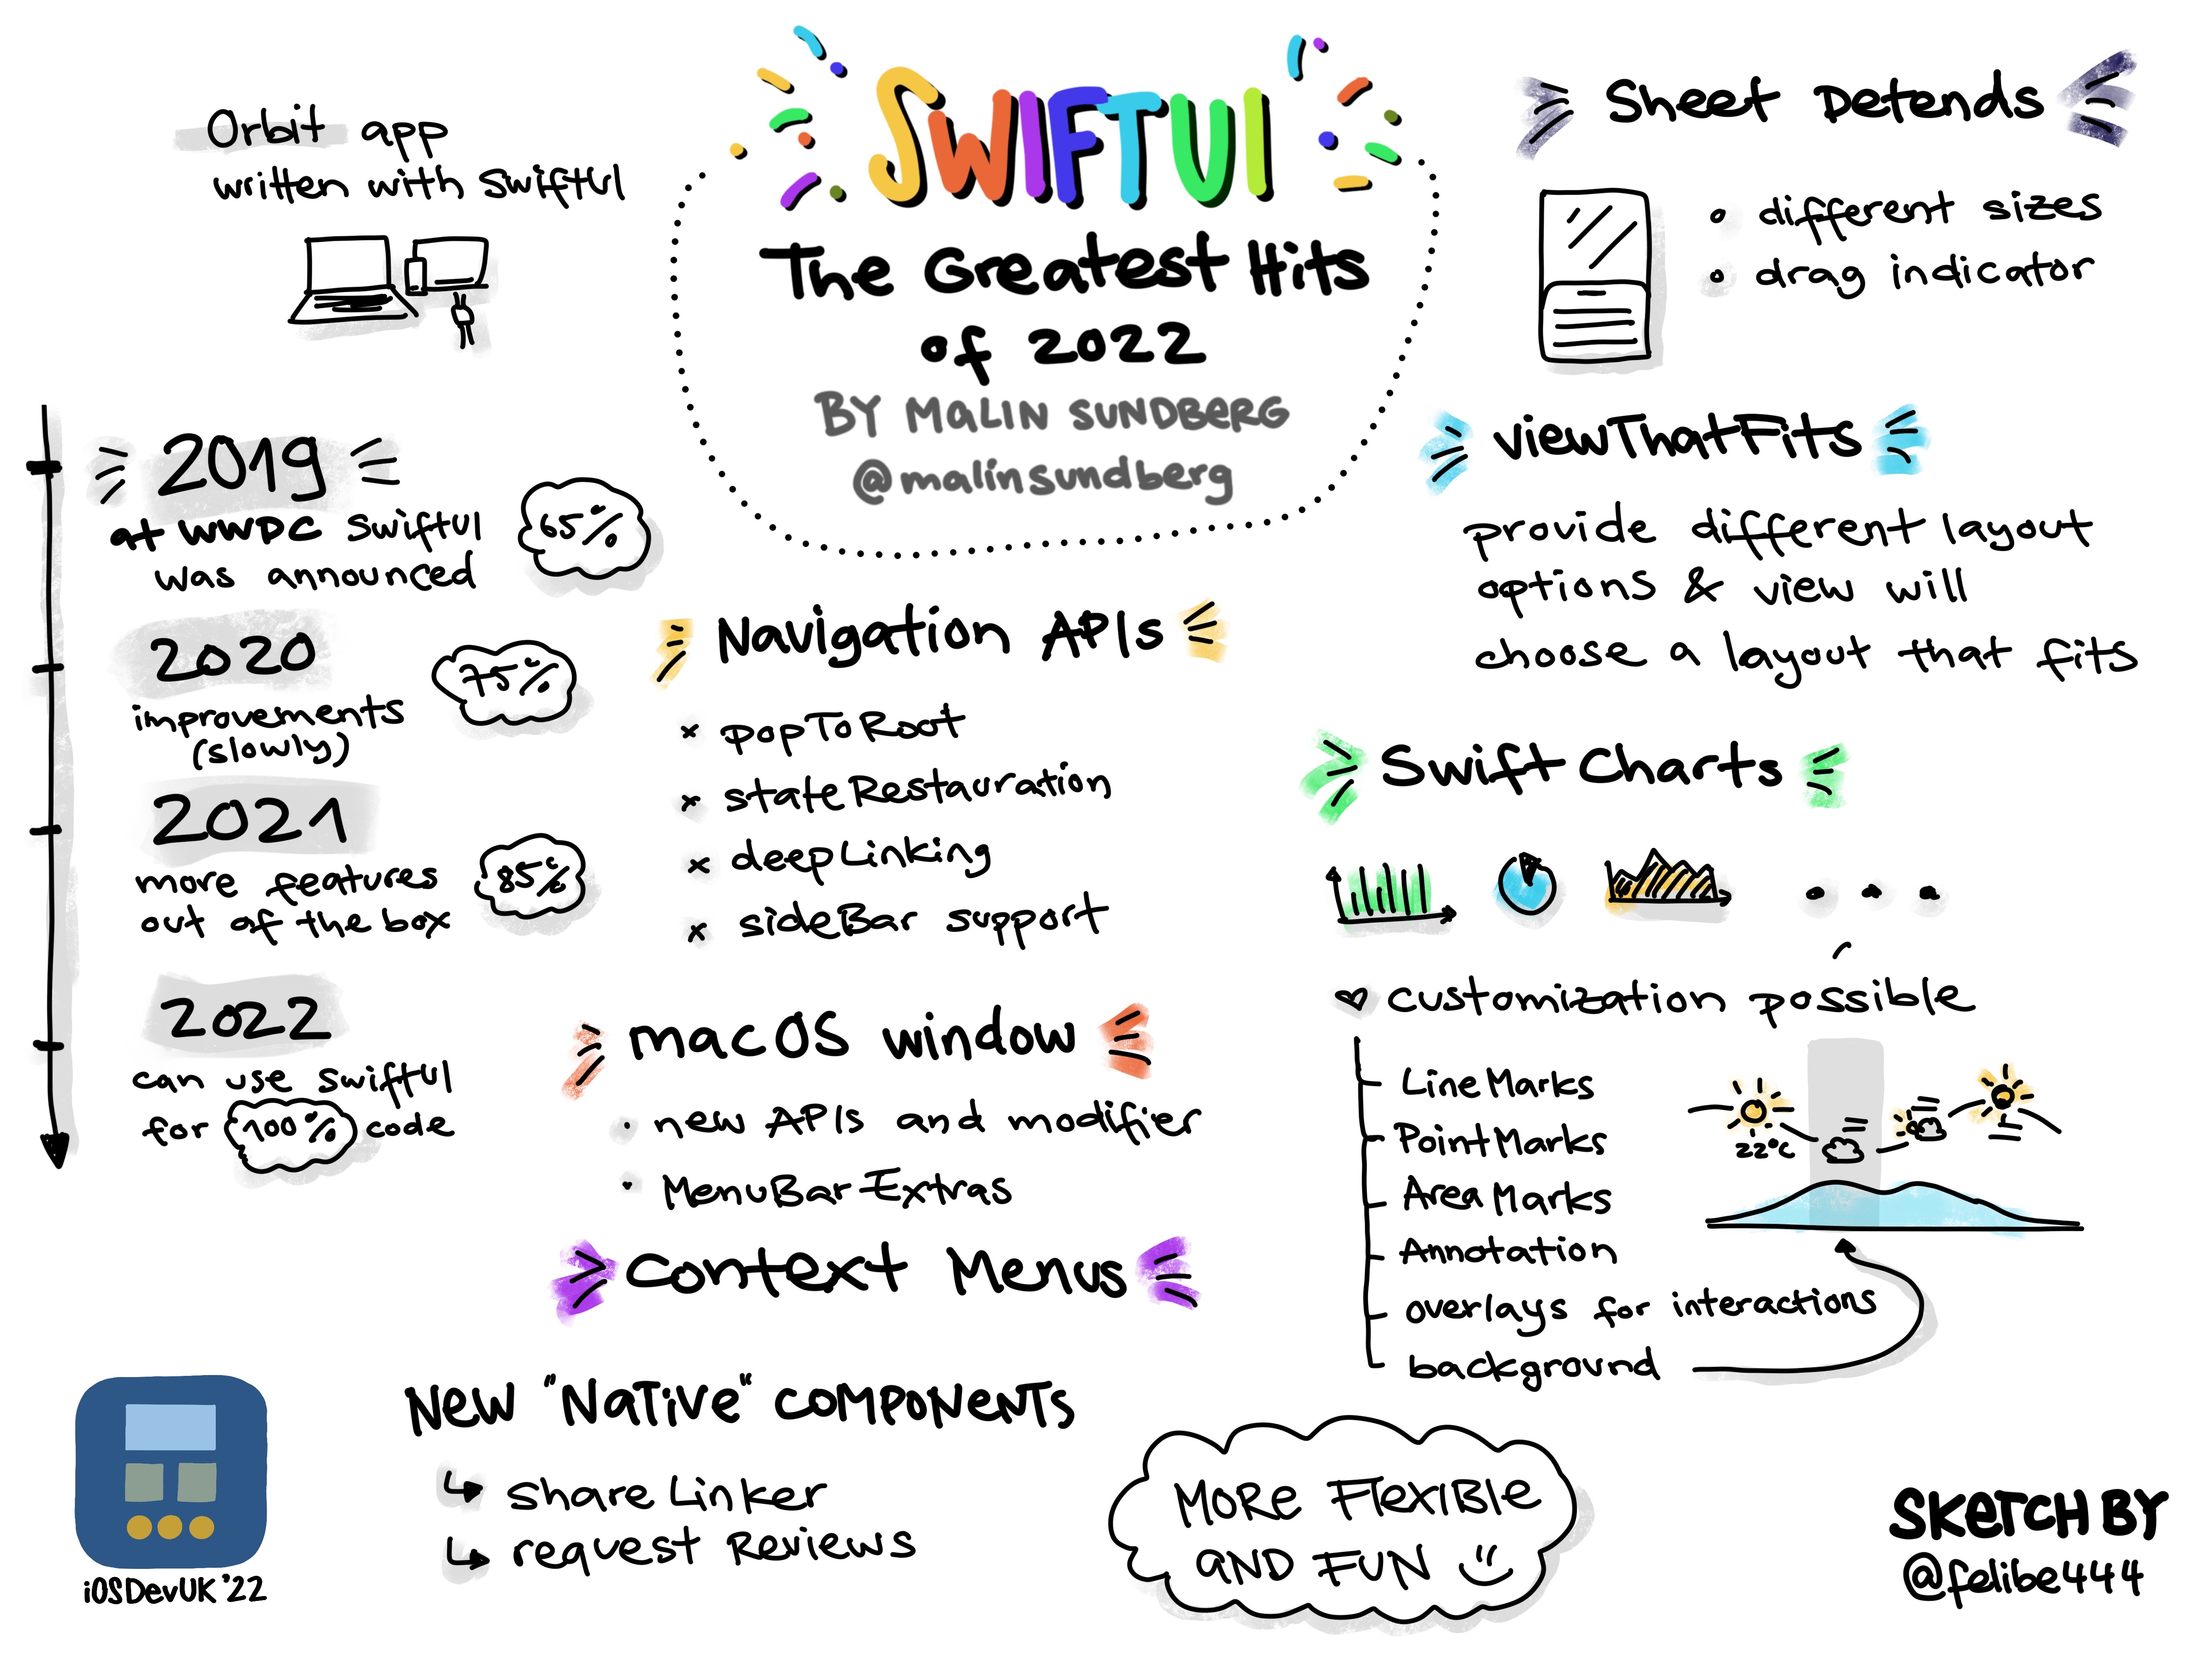 SWIFTUI
The Greatest Hits
of 2022
BY MALIN SUNDBERG
@malinsundberg
Orbit app
written with SwiftUI
2019
at WWDC SwiftUI
was announced
65%
2020
improvements
(slowly)
75%
2021
more features
out of the box
85%
2022
can use SwiftUI
for 100% code
Navigation APIs
x popToRoot
x stateRestauration
x deepLinking
x sideBar support
macOS window
· new APIs and modifier
· MenuBarExtras
Context Menus
New "Native" components
↳ shareLinker
↳ request Reviews
Sheet Detends
• different sizes
• drag indicator
viewThatFits
provide different layout
options & view will
choose a layout that fits
Swift Charts
...
♥ customization possible
LineMarks
PointMarks
AreaMarks
Annotation
overlays for interactions
background
22°C
MORE FLEXIBLE
AND FUN
iOSDevUK '22
SKETCH BY
@felibe444